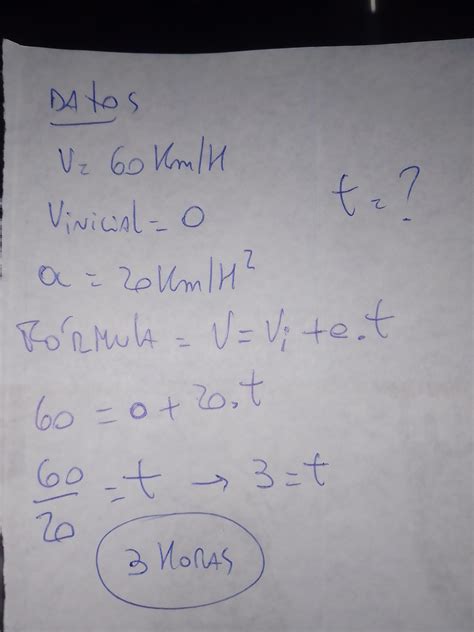 DATOS
V= 60 Km/H
t=?
Vinicial= 0
a = 20 Km/H²
FÓRMULA = V=Vi+e.t
60 = 0 + 20.t
60/20 = t → 3=t
3 HORAS